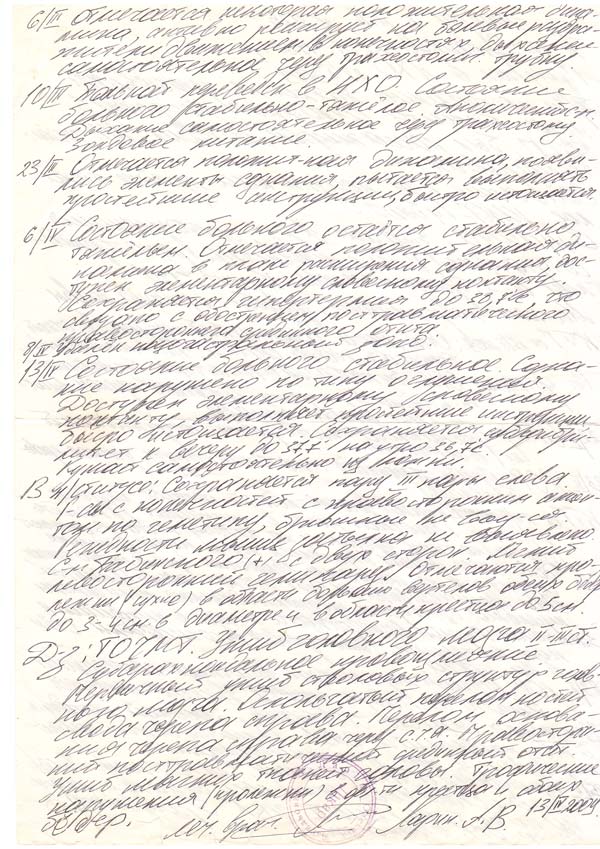 6/III Отмечается некоторая положительная дина-
мика, активно реагирует на болевые раздра-
жители движением в конечностях, дыхание
самостоятельное через трахеостом. трубку
10/III Больной переведен в НХО. Состояние
больного стабильно-тяжёлое.
Дыхание самостоятельное через трахеостому
Зондовое питание.
23/III Отмечается положит-ная динамика, появи-
лись элементы сознания, пытается выполнять
простейшие инструкции, быстро истощается.
6/IV Состояние больного остаётся стабильно
тяжёлым. Отмечается положительная ди-
намика в плане расширения сознания, дос-
тупен элементарному словесному контакту.
Сохраняется гипертермия до 38,7°С, что
связано с обострением посттравматического
правостороннего гнойного отита.
9/IV Удален назогастральный зонд.
13/IV Состояние больного стабильное. Созна-
ние нарушено по типу оглушения.
Доступен элементарному словесному
контакту, выполняет простейшие инструкции,
быстро истощается. Сохраняется субфебри-
литет к вечеру до 37,7 на утро 36,7С.
Кушает самостоятельно из ложки.
В н/статусе: Сохраняется парез III пары слева.
с конечностей с правосторонним акцен-
том по гемитипу, брюшные не выз-ся.
мышц затылка не выявлено.
С-м Бабинского (+) с двух сторон. Легкий
левосторонний гемипарез. Отмечаются про-
лежни (сухие) в области больших вертелов обоих бедер
до 3-4 см в диаметре и в области крестца до 5 см.
Д-з: ТОЧМТ. Ушиб головного мозга II-III ст.
Субарахноидальное кровоизлияние.
Первичный ушиб стволовых структур голов-
ного мозга. Оскольчатый перелом костей
свода черепа справа. Перелом основа-
ния черепа справа через с.ч.я. Правосторон-
ний посттравматический гнойный отит.
Ушиб мягких тканей головы. Трофические
нарушения (пролежни) в обл-ти крестца и обоих
бедер.
леч. врач Ларин А.В. 13/IV 2004